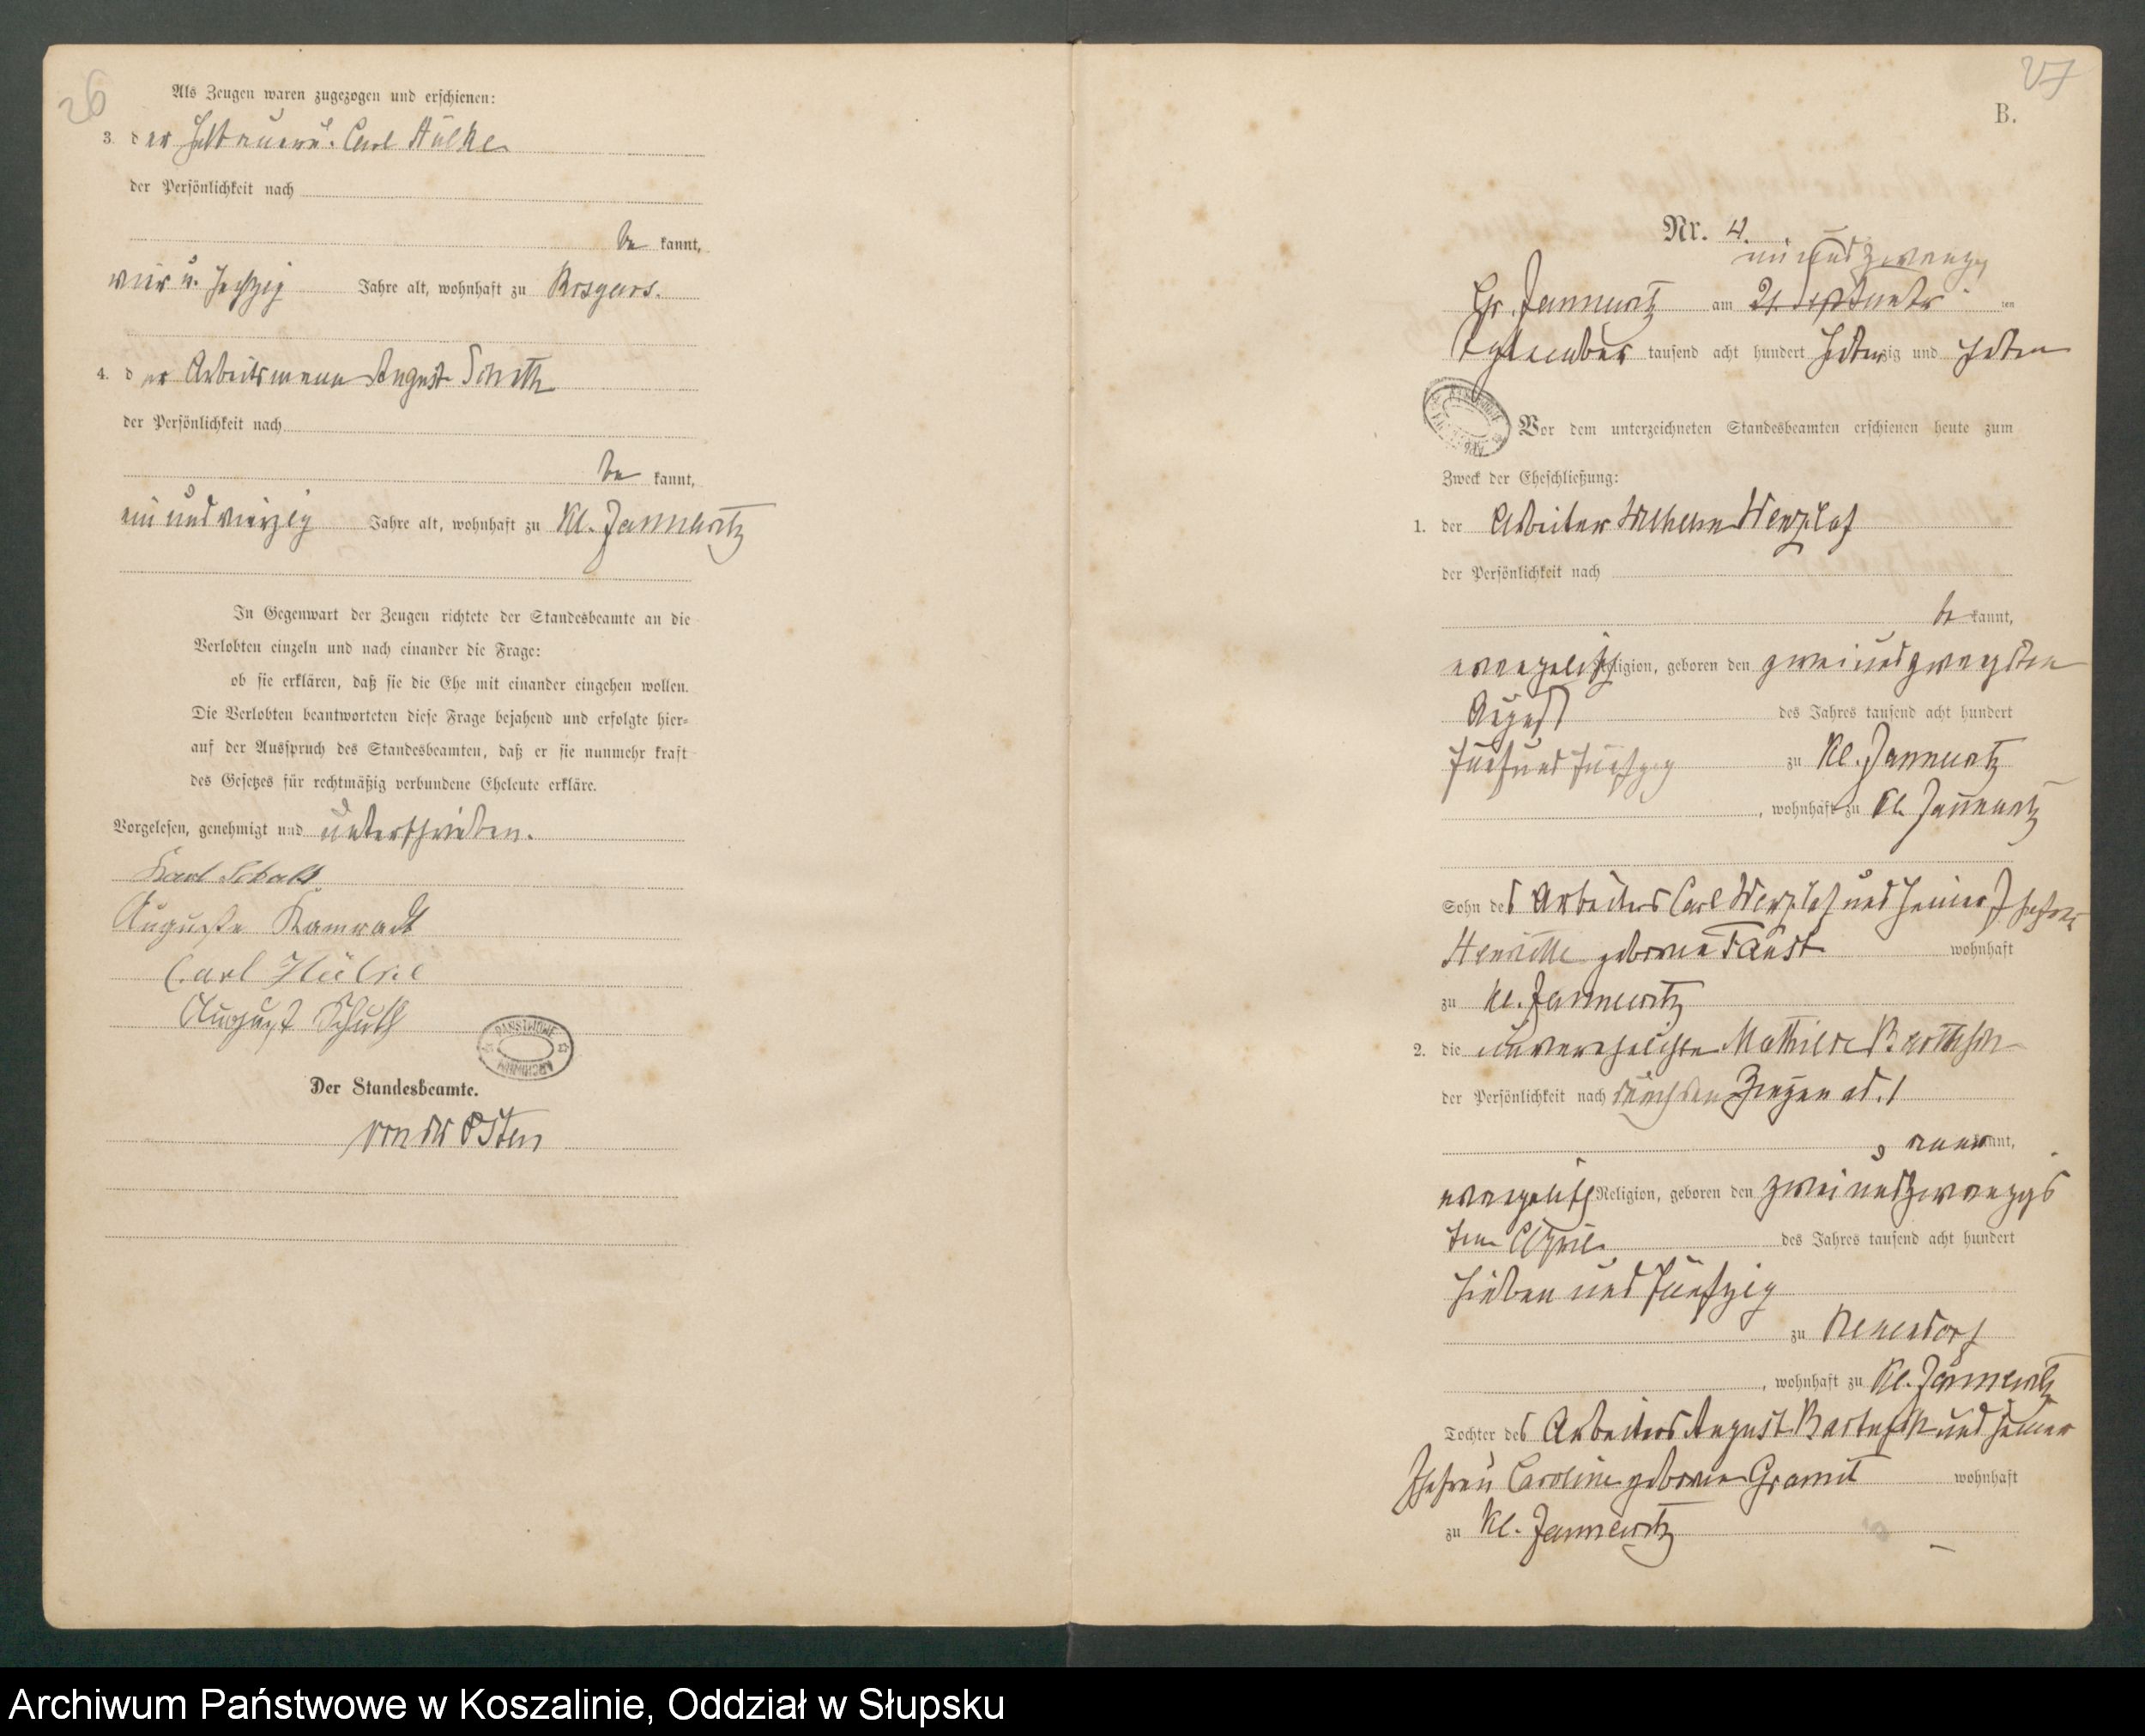 26
Als Zeugen waren zugezogen und erschienen:
3. der Carl Hülke
der Persönlichkeit nach
be kannt,
vier u. sechzig Jahre alt, wohnhaft zu Rosgars.
4. der Arbeitsmann August Schuth
der Persönlichkeit nach
be kannt,
ein und vierzig Jahre alt, wohnhaft zu Kl. Jannewitz
In Gegenwart der Zeugen richtete der Standesbeamte an die
Verlobten einzeln und nach einander die Frage:
ob sie erklären, daß sie die Ehe mit einander eingehen wollen.
Die Verlobten beantworteten diese Frage bejahend und erfolgte hier-
auf der Ausspruch des Standesbeamten, daß er sie nunmehr kraft
des Gesetzes für rechtmäßig verbundene Eheleute erkläre.
Vorgelesen, genehmigt und unterschrieben.
Karl
Auguste Kamradt
Carl Hülke
August Schuth
Der Standesbeamte.
von der Osten
27
B.
Nr. 4.
ein und zwanzig
Gr. Jannewitz am 21 September ten
September tausend acht hundert siebenzig und sieben
Vor dem unterzeichneten Standesbeamten erschienen heute zum
Zweck der Eheschließung:
1. der Arbeiter Wilhelm Wenzlaf
der Persönlichkeit nach
be kannt,
evangelisch Religion, geboren den zwei und zwanzigsten
August des Jahres tausend acht hundert
fünf und fünfzig zu Kl. Jannewitz
, wohnhaft zu Kl. Jannewitz
Sohn des Arbeiters Carl Wenzlaf und seiner Ehefrau
Henriette geborene Faust wohnhaft
zu Kl. Jannewitz
2. die unverehelichte Mathilde Bartusch
der Persönlichkeit nach durch den Zeugen ad. 1
aner kannt,
evangelisch Religion, geboren den zwei und zwanzigs
ten April des Jahres tausend acht hundert
sieben und fünfzig
zu Neuendorf
, wohnhaft zu Kl. Jannewitz
Tochter des Arbeiters August Bartusch und seiner
Ehefrau Caroline geborene Gramit wohnhaft
zu Kl. Jannewitz
Archiwum Państwowe w Koszalinie, Oddział w Słupsku